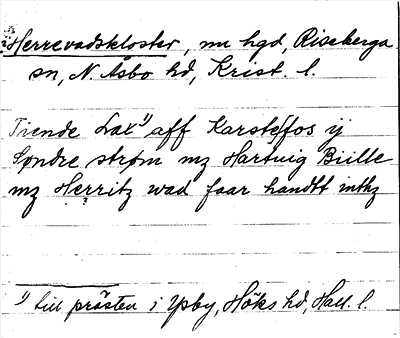 Herrevadskloster, nu hgd, Riseberga
sn, N. Åsbo hd, Krist. l.
Tiende Lax¹⁾ aff Karsteffos ij
Søndre strøm mz Hartuig Biille
mz Herritz wad faar handtt inthz
¹⁾ till prästen i Ysby, Höks hd, Hall. l.